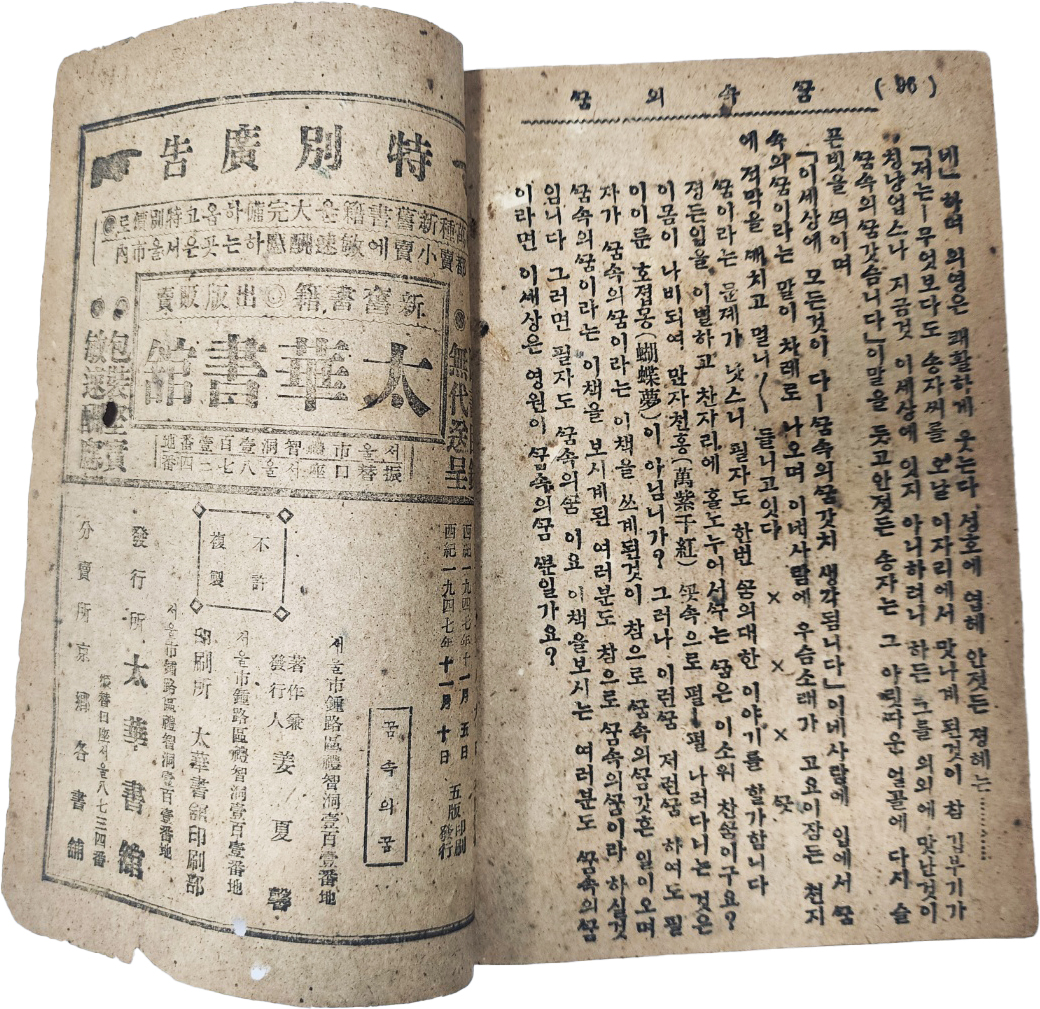 (96) ᄭᅮᆷ 속 의 ᄭᅮᆷ
네」 하며 의영은 쾌활하게 웃는다 성호에 엽헤 안젓든 정혜는…………
「저는―무엇보다도 송자씨를 오날 이자리에서 맛나게 된것이 참 깁부기가
칭냥업스나 지금것 이세상에 잇지 아니하려니 하든 그를 의외에 맛난것이
ᄭᅮᆷ속의ᄭᅮᆷ갓슴니다」이말을 듯고안젓든 송자는 그 아릿ᄯᅡ운 얼골에 다시 슬
픈빗을 ᄯᅴ이며
「이세상에 모든것이 다―ᄭᅮᆷ속의ᄭᅮᆷ갓치 생각됨니다」이네사람에 입에서 ᄭᅮᆷ
속의ᄭᅮᆷ이라는 말이 차례로 나오며 이네사람에 우슴소래가 고요이잠든 천지
에 적막을 ᄭᅢ치고 멀니〱 들니고잇다 × × × ᄭᅳᆺ
ᄭᅮᆷ이라는 문제가 낫스니 필자도 한번 ᄭᅮᆷ의대한 이야기를 할가함니다
정든임을 이별하고 찬자리에 홀노누어서ᄭᅮ는 ᄭᅮᆷ은 이소위 찬ᄭᅮᆷ이구요?
이몸이 나비되여 만자천홍(萬紫千紅) ᄭᅩᆺ속으로 펄―펄 나러다니는 것은
이이룬 호졉몽(蝴蝶夢)이 아님니가? 그러나 이런ᄭᅮᆷ 저런ᄭᅮᆷ 하여도 필
자가 ᄭᅮᆷ속의ᄭᅮᆷ이라는 이책을 쓰게된것이 참으로 ᄭᅮᆷ속의ᄭᅮᆷ갓흔 일이오며
ᄭᅮᆷ속의ᄭᅮᆷ이라는 이책을 보시게된 여러분도 참으로 ᄭᅮᆷ속의ᄭᅮᆷ이라 하실것
입니다 그러면 필자도 ᄭᅮᆷ속의ᄭᅮᆷ 이요 이책을보시는 여러분도 ᄭᅮᆷ속의ᄭᅮᆷ
이라면 이세상은 영원이 ᄭᅮᆷ속의ᄭᅮᆷ ᄲᅮᆫ일가요?
特別廣告
種新舊書籍을大完備하옵고特別價로
都賣小賣에敏速酬應하는곳은서울市內
無代送呈
新舊書籍◎出版販賣
太華書館
서울市 禮智洞壹百壹番地
振替口座서울八七三四番
包裝堅實
敏速酬應
西紀一九四七年十一月 五日 五版印刷
西紀一九四七年十一月 十日 五版發行
꿈속의꿈
서울市鍾路區禮智洞壹百壹番地
著作兼
發行人 姜夏馨
不許
複製
서울市鍾路區禮智洞壹百壹番地
印刷所 太華書館印刷部
서울市鍾路區禮智洞壹百壹番地
發行所 太華書館
振替口座서울八七三四番
分賣所 京鄉各書舖